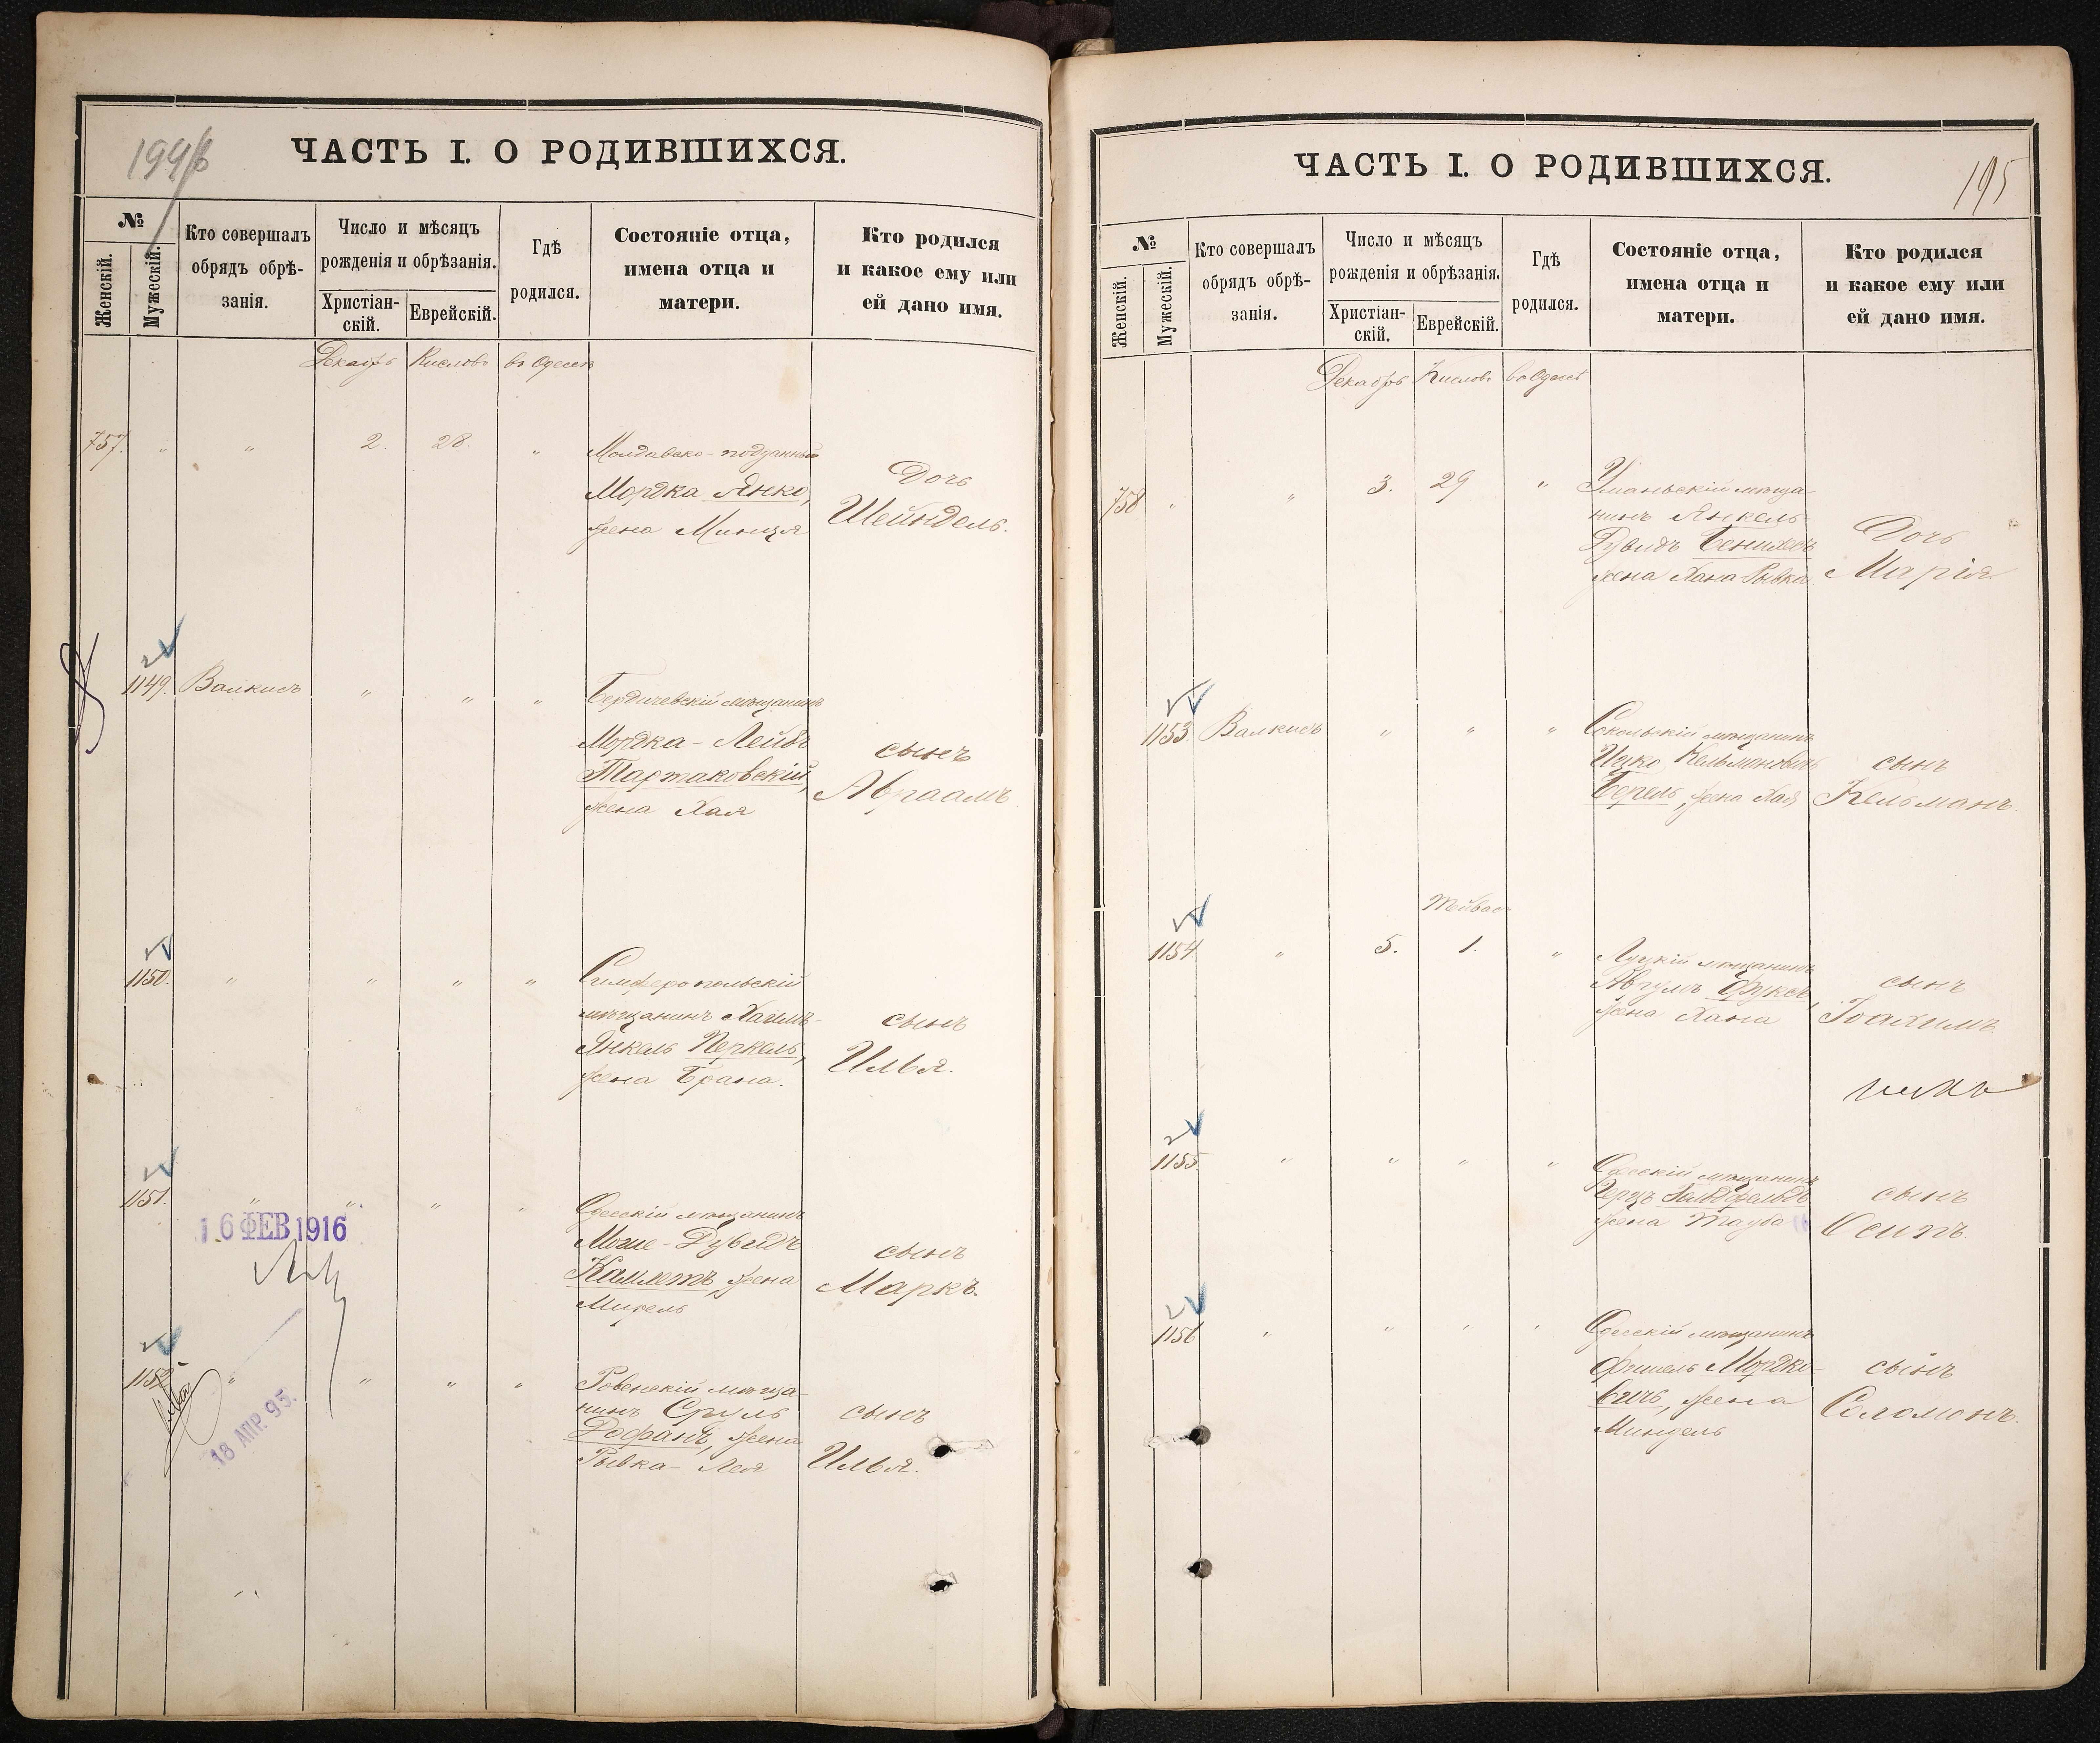 1994/б
ЧАСТЬ I. О РОДИВШИХСЯ.
№
Женскій.
Мужескій.
Кто совершалъ
обрядъ обрѣ-
занія.
Число и мѣсяцъ
рожденія и обрѣзанія.
Христіан-
скій.
Еврейскій.
Гдѣ
родился.
Состояніе отца,
имена отца и
матери.
Кто родился
и какое ему или
ей дано имя.
Декабрь Кислевъ въ Одессѣ
757. " " 2. 28. " Молдавско-подданный
Мордка Янко,
жена Минця
Дочь
Шейндель.
1149. Валкисъ " " " Бердичевскій мѣщанинъ
Мордка-Лейбъ
Тартаковскій,
жена Хая
сынъ
Авраамъ.
1150. " " " " Симферопольскій
мѣщанинъ Хаимъ-
Янкель Перкель,
жена Брана.
сынъ
Илья.
1151. " " " " Одесскій мѣщанинъ
Мошe-Дувидъ
Камметъ, жена
Мирель
сынъ
Маркъ.
16 ФЕВ 1916
1152 " " " " Ровенскій мѣща-
нинъ Сруль
Дофанъ, жена
Рывка-Лея
сынъ
Илья.
18 АПР. 95.
195
ЧАСТЬ I. О РОДИВШИХСЯ.
№
Женскій.
Мужескій.
Кто совершалъ
обрядъ обрѣ-
занія.
Число и мѣсяцъ
рожденія и обрѣзанія.
Христіан-
скій.
Еврейскій.
Гдѣ
родился.
Состояніе отца,
имена отца и
матери.
Кто родился
и какое ему или
ей дано имя.
Декабрь Кислевъ въ Одессѣ
758 " " 3. 29 " Уманьскій мѣща-
нинъ Янкель
Дувидъ
жена Хана-Рывка
Дочь
Марія
1153. Валкисъ " " " Сокольскій мѣщанинъ
Ицко Кельмановичъ
Берель, жена Хая
сынъ
Кельманъ.
Тейвесъ
1154. " 5. 1. " Луцкій мѣщанинъ
Фуксъ,
жена Хана
сынъ
Іоахимъ
1155. " " " " Одесскій мѣщанинъ
Герцъ
жена Тауба
сынъ
Осипъ.
1156 " " " " Одесскій мѣщанинъ
Фишель Мордко-
вичъ, жена
Миндель
сынъ
Соломонъ.